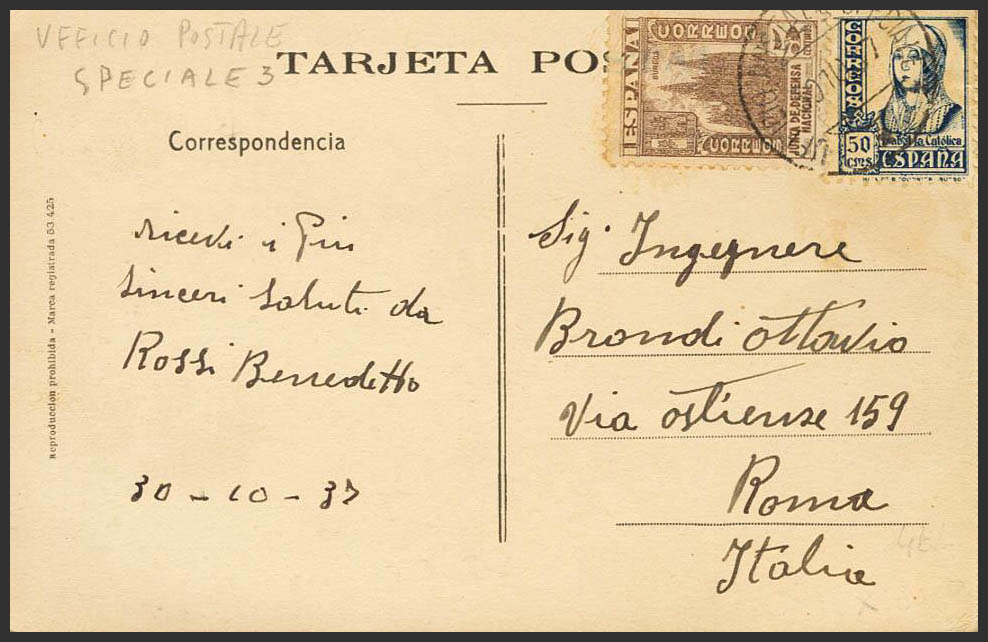 VFFICIO POSTALE
SPECIALE 3
TARJETA POS
ESPAÑA
CORREOS
BURGOS
JUNTA DE DEFENSA
NACIONAL
CORREOS
CORREOS
50
CMS
Isabel la Católica
ESPAÑA
Correspondencia
Reproduccion prohibida - Marca registrada 53.425
ricevi i Più
Sinceri Saluti da
Rossi Benedetto
30 - 10 - 37
Sig. Ingegnere
Brondi Ottavio
Via Ostiense 159
Roma
Italia